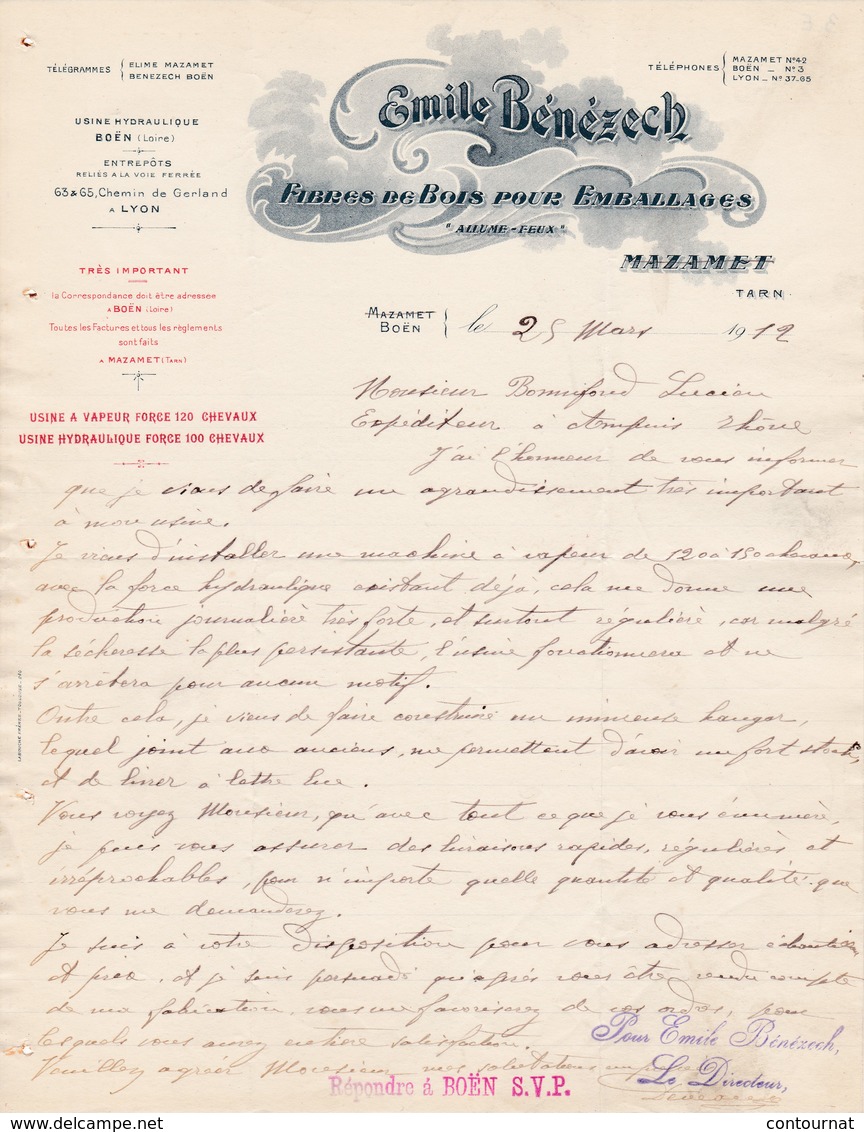 TÉLÉGRAMMES ELIME MAZAMET
BENEZECH BOËN
TÉLÉPHONES MAZAMET Nº 42
BOËN — Nº 3
LYON — Nº 37-65
Emile Bénézech
FIBRES DE BOIS POUR EMBALLAGES
"ALLUME-FEUX"
MAZAMET
TARN
USINE HYDRAULIQUE
BOËN (Loire)
ENTREPÔTS
RELIÉS A LA VOIE FERRÉE
63 & 65, Chemin de Gerland
A LYON
TRÈS IMPORTANT
la Correspondance doit être adressée
A BOËN (Loire)
Toutes les Factures et tous les règlements
sont faits
A MAZAMET (TARN)
USINE A VAPEUR FORCE 120 CHEVAUX
USINE HYDRAULIQUE FORCE 100 CHEVAUX
MAZAMET
BOËN
le 25 Mars 1912
Monsieur Bonnefond Lucien
Expéditeur à Ampuis Rhône
J'ai l'honneur de vous informer
que je viens de faire un agrandissement très important
à mon usine.
Je viens d'installer une machine à vapeur de 120 à 150 chevaux,
avec la force hydraulique existant déjà, cela me donne une
production journalière très forte, et surtout régulière, car malgré
la sécheresse la plus persistante, l'usine fonctionnera et ne
s'arrêtera pour aucun motif.
Outre cela, je viens de faire construire un immense hangar,
lequel joint aux anciens, me permettent d'avoir un fort stock,
et de livrer à lettre lue.
Vous voyez Monsieur, qu'avec tout ce que je vous énumère,
je puis vous assurer des livraisons rapides, régulières et
irréprochables, pour n'importe quelle quantité et qualité que
vous me demanderez.
Je suis à votre disposition pour vous adresser échantillons
et prix, et je suis persuadé qu'après vous être rendu compte
de ma fabrication, vous me favoriserez de vos ordres, pour
lesquels vous aurez entière satisfaction.
Veuillez agréer Monsieur mes salutations
Pour Emile Bénézech,
Le Directeur,
Répondre à BOËN S.V.P.
LABOUCHE FRÈRES-TOULOUSE
contournat
www.delcampe.net